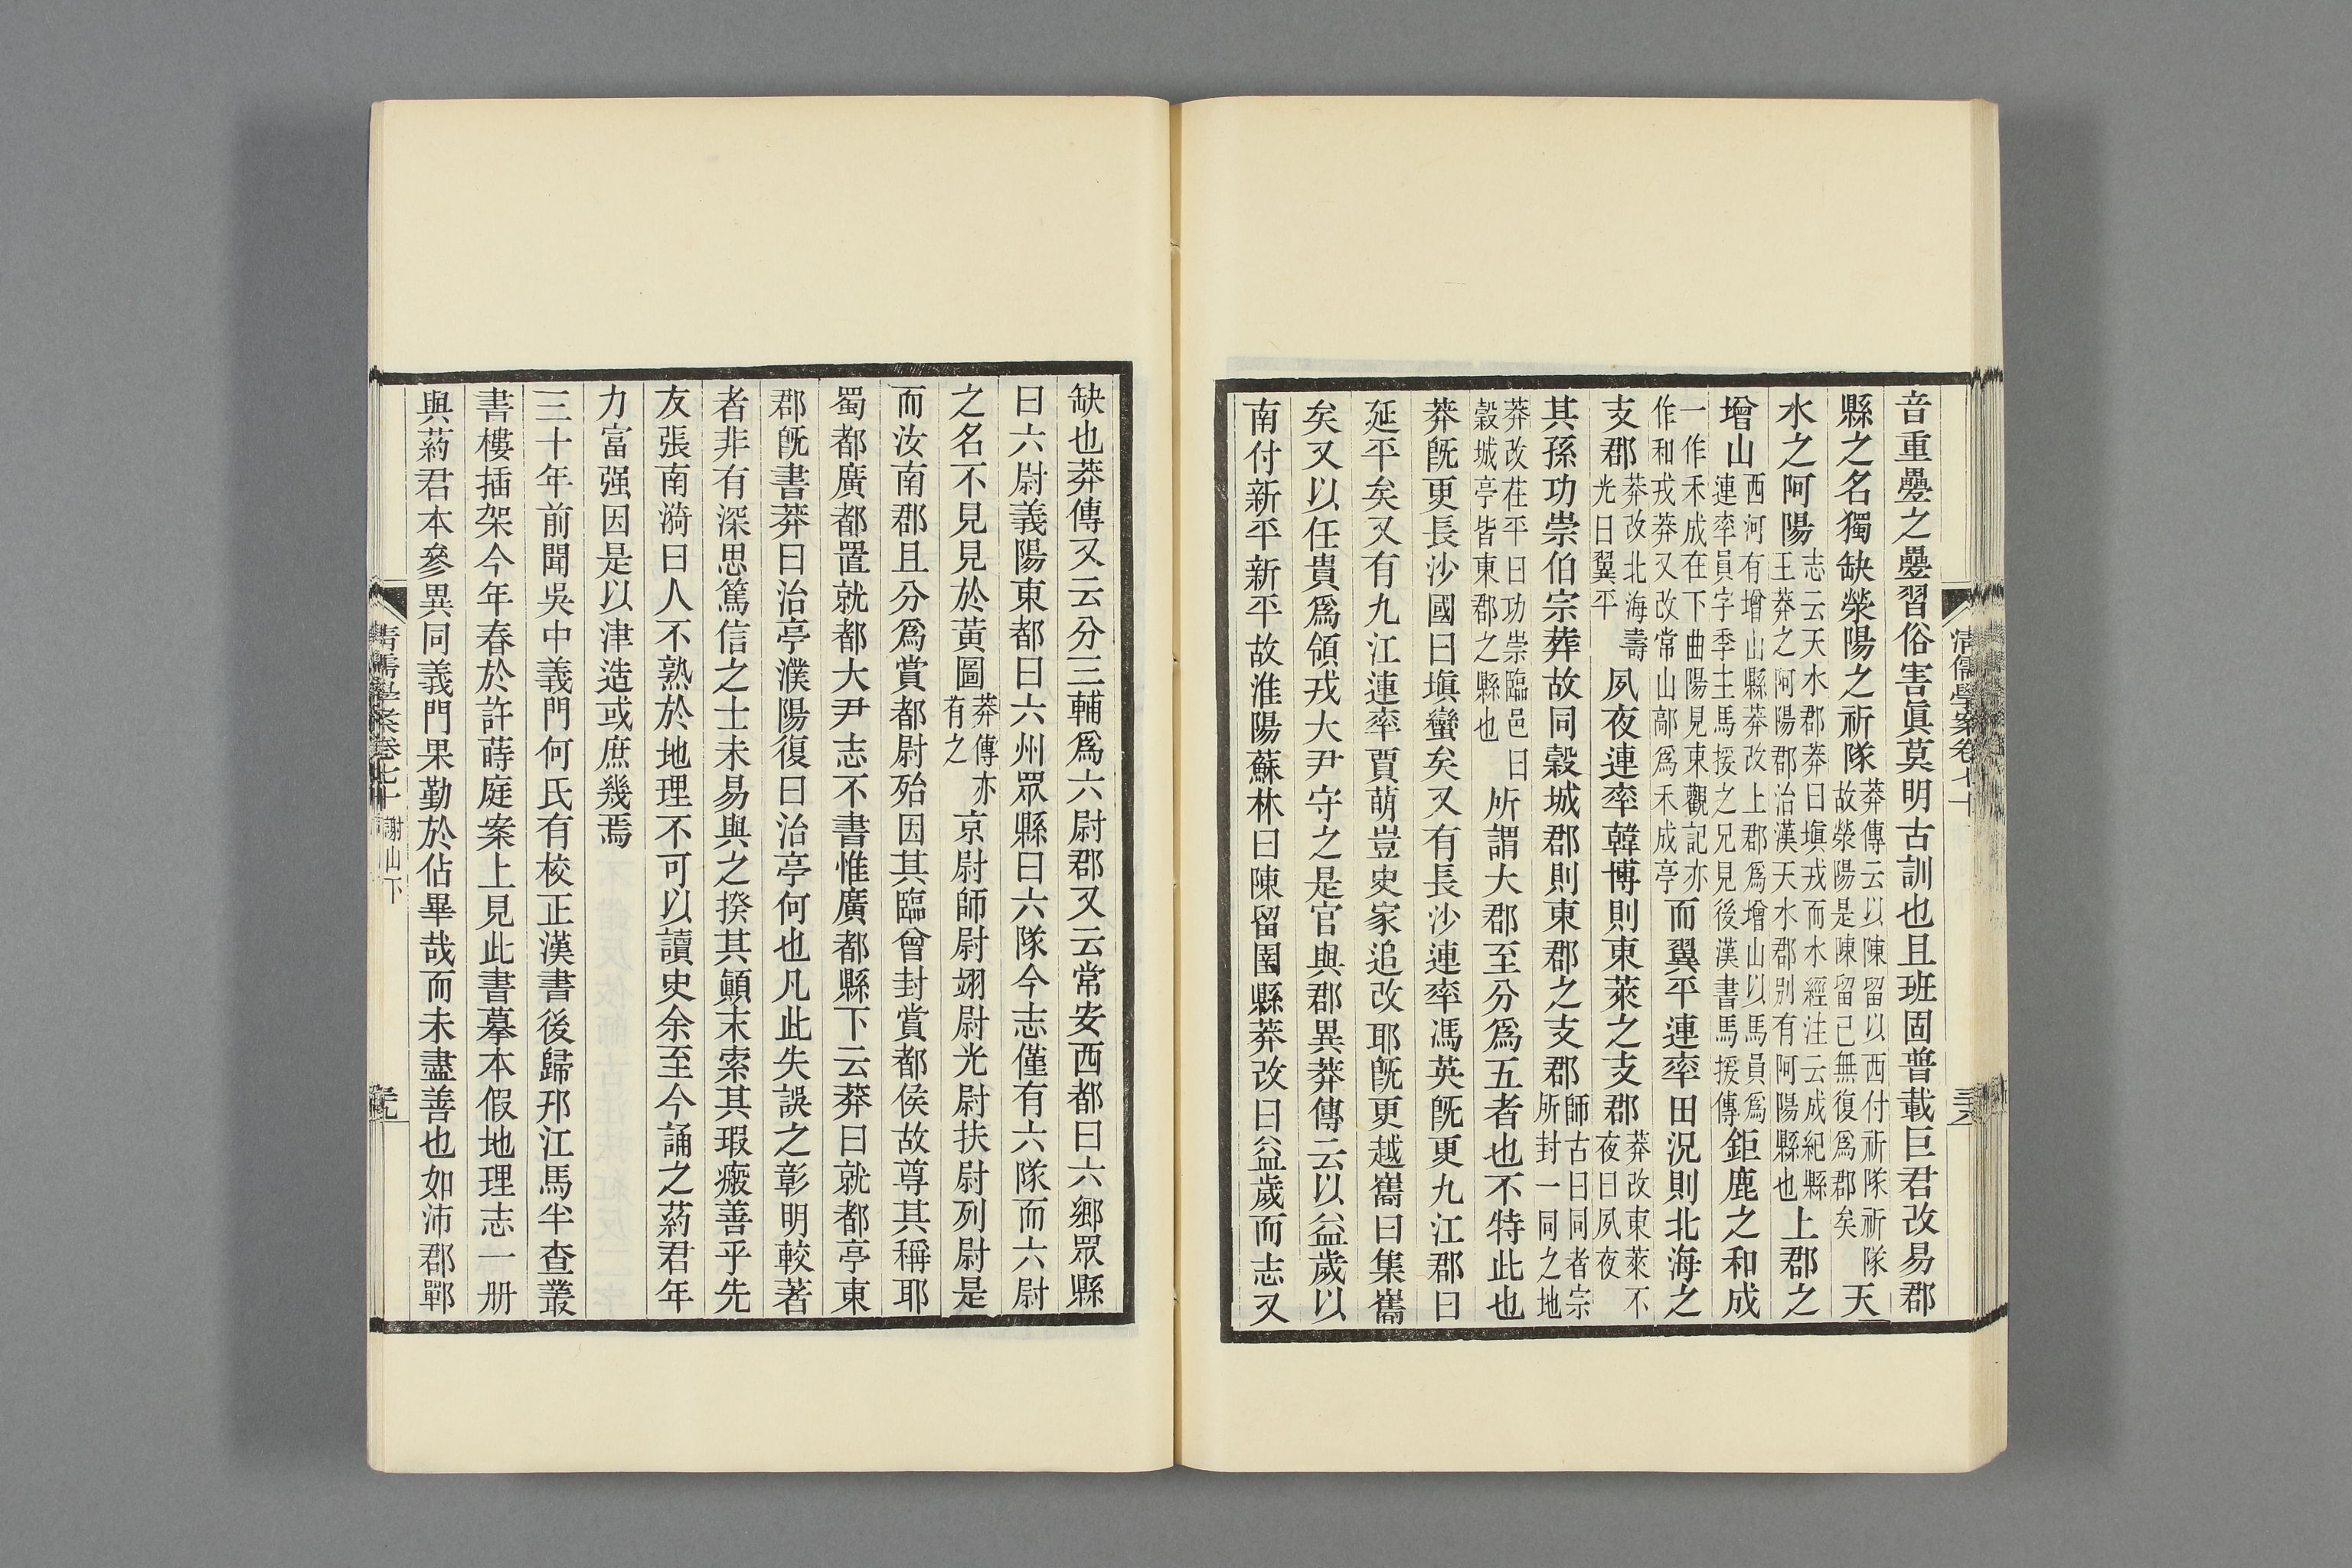 音重疊之疊習俗害眞莫明古訓也且班固普載巨君改易郡
縣之名獨缺滎陽之祈隊莽傳云以陳留以西付祈隊祈隊故滎陽是陳留已無復爲郡矣天
水之阿陽志云天水郡莽曰塡戎而水經注云成紀縣王莽之阿陽郡治漢天水郡別有阿陽縣也上郡之
增山西河有增山縣莽改上郡爲增山以馬員爲連率員字季主馬援之兄見後漢書馬援傳鉅鹿之和成
一作禾成在下曲陽見東觀記亦作和戎莽又改常山鄗爲禾成亭而翼平連率田況則北海之
支郡莽改北海壽光曰翼平夙夜連率韓博則東萊之支郡莽改東萊不夜曰夙夜
其孫功崇伯宗葬故同穀城郡則東郡之支郡師古曰同者宗所封一同之地
莽改茌平曰功崇臨邑曰穀城亭皆東郡之縣也所謂大郡至分爲五者也不特此也
莽旣更長沙國曰塡蠻矣又有長沙連率馮英旣更九江郡曰
延平矣又有九江連率賈萌豈史家追改耶旣更越巂曰集巂
矣又以任貴爲領戎大尹守之是官與郡異莽傳云以益歲以
南付新平新平故淮陽蘇林曰陳留圉縣莽改曰益歲而志又
清儒學案卷七十
缺也莽傳又云分三輔爲六尉郡又云常安西都曰六鄉眾縣
曰六尉義陽東都曰六州眾縣曰六隊今志僅有六隊而六尉
之名不見見於黃圖莽傳亦有之京尉師尉翊尉光尉扶尉列尉是
而汝南郡且分爲賞都尉殆因其臨曾封賞都侯故尊其稱耶
蜀都廣都置就都大尹志不書惟廣都縣下云莽曰就都亭東
郡旣書莽曰治亭濮陽復曰治亭何也凡此失誤之彰明較著
者非有深思篤信之士未易與之揆其顚末索其瑕瘢善乎先
友張南漪曰人不熟於地理不可以讀史余至今誦之葯君年
力富强因是以津造或庶幾焉
三十年前聞吳中義門何氏有校正漢書後歸邗江馬半查叢
書樓插架今年春於許蒔庭案上見此書摹本假地理志一册
與葯君本參異同義門果勤於佔畢哉而未盡善也如沛郡鄲
清儒學案卷七十 謝山下